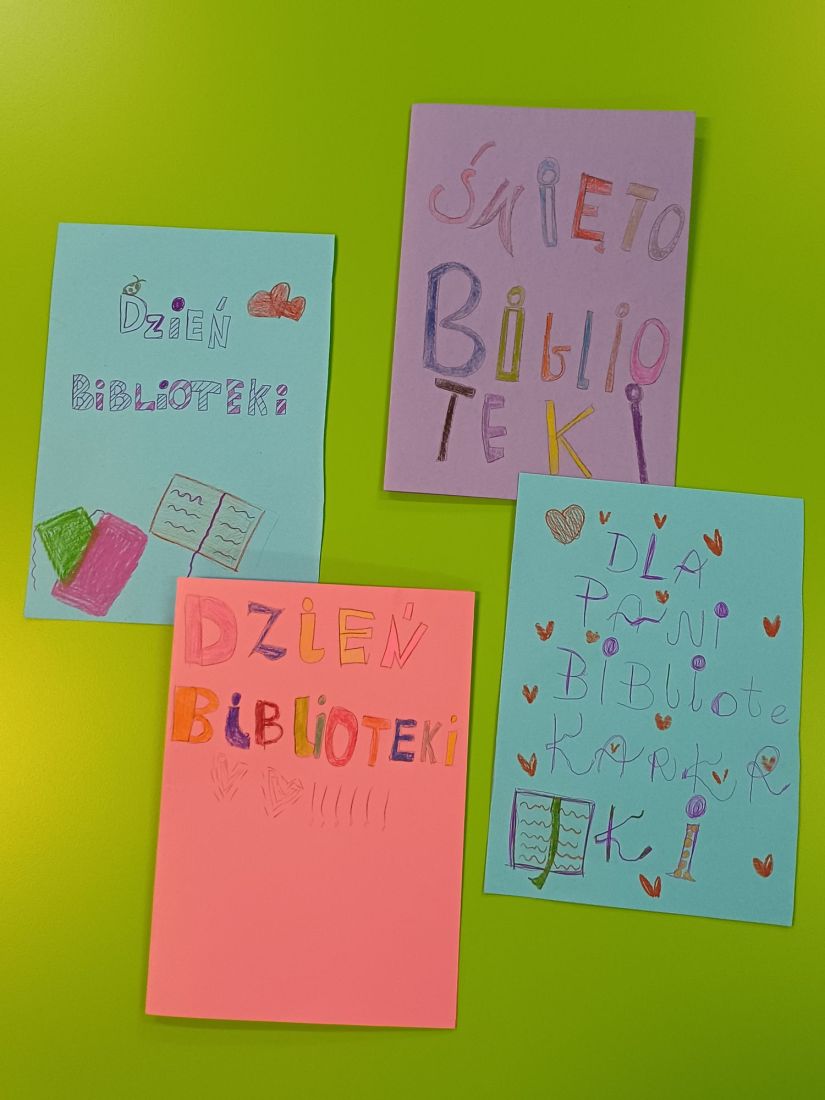 DZIEŃ
BIBLIOTEKI
ŚWIĘTO
BIBLIO
TEKI
DZIEŃ
BIBLIOTEKI
!!!!!!
DLA
PANI
BIBLIOTE
KARKR
KI